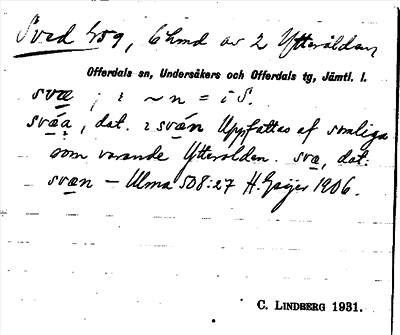 Sved 459, 6 hmd av 2 Ytterolden
Offerdals sn, Undersåkers och Offerdals tg, Jämtl. l.
svæ ; i ~ n = i S.
svǽa, dat. i svǽn Uppfattas af somliga
som varande Ytterolden. svæ, dat.
svæn – Ulma 508:27 H. Geijer 1906.
C. LINDBERG 1931.